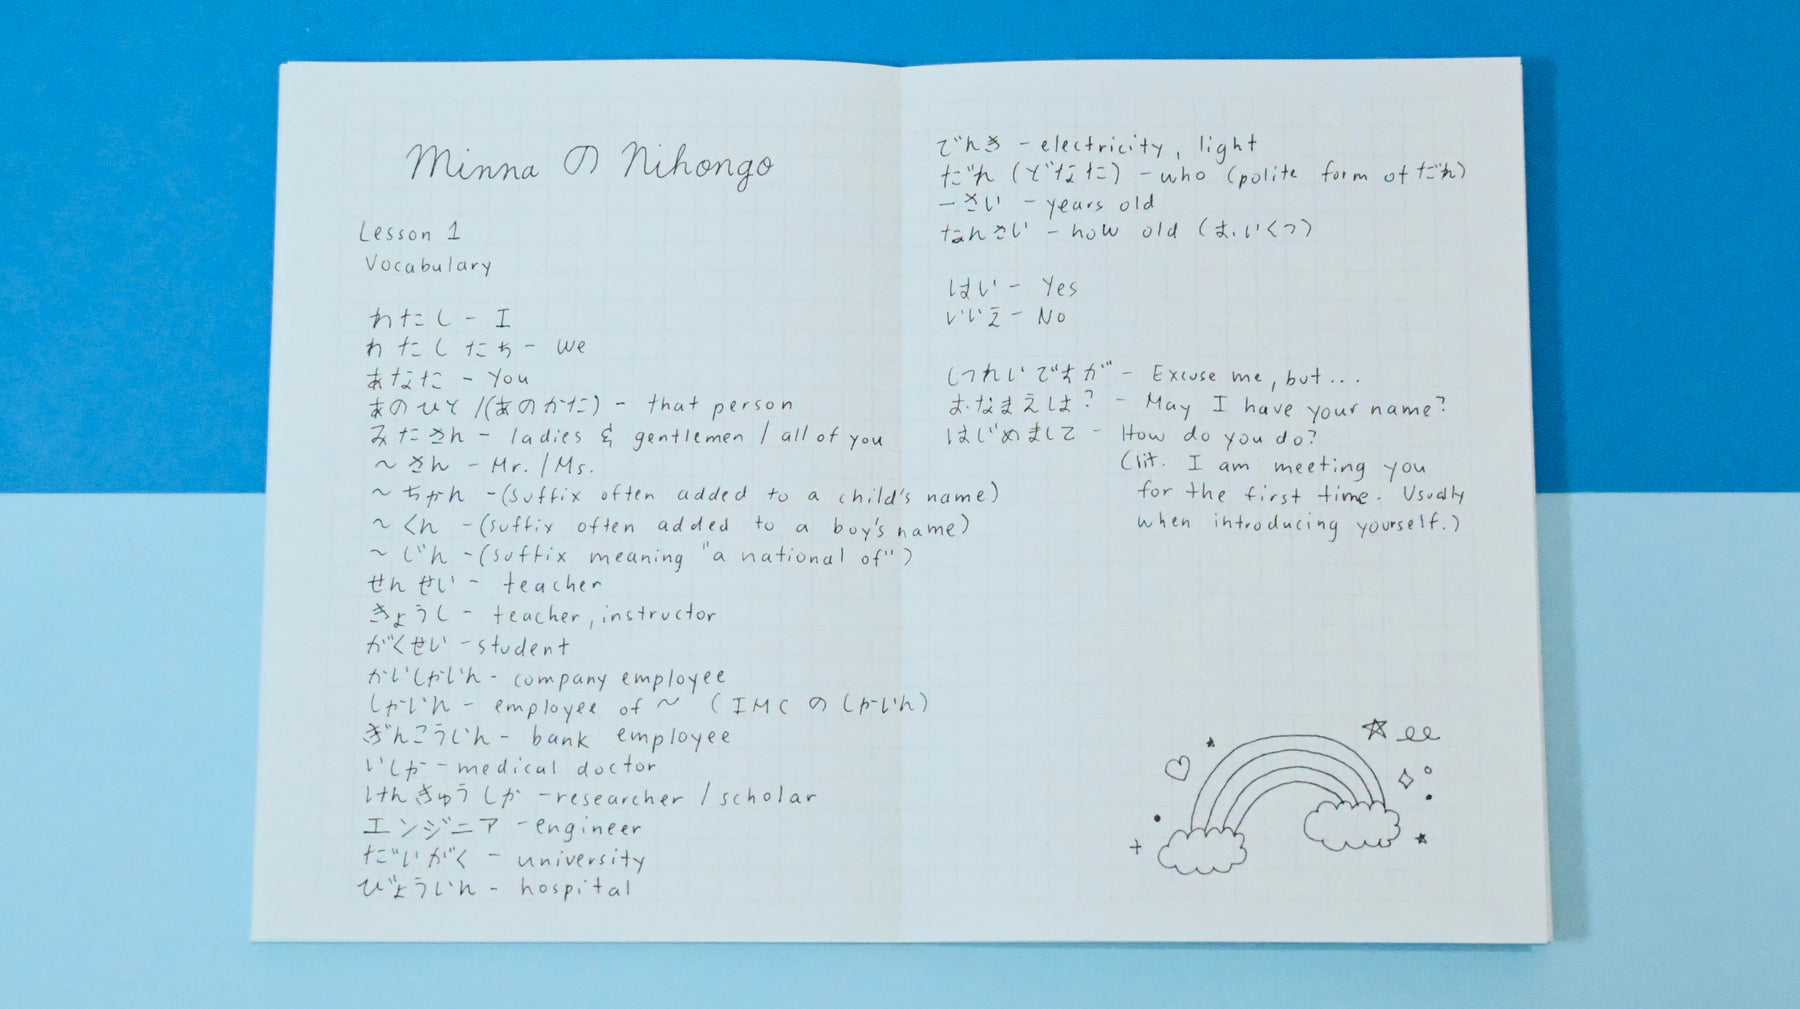 Minna の Nihongo
Lesson 1
Vocabulary
わたし - I
わたしたち - we
あなた - You
あのひと/(あのかた) - that person
みたさん - ladies & gentlemen / all of you
~さん - Mr./Ms.
~ちゃん -(suffix often added to a child's name)
~くん -(suffix often added to a boy's name)
~じん -(suffix meaning "a national of")
せんせい - teacher
きょうし - teacher, instructor
がくせい - student
かいしゃいん - company employee
しゃいん - employee of ~ (IMC のしゃいん)
ぎんこういん - bank employee
いしゃ - medical doctor
けんきゅうしゃ - researcher / scholar
エンジニア - engineer
だいがく - university
びょういん - hospital
でんき - electricity, light
だれ (どなた) - who (polite form of だれ)
ーさい - years old
なんさい - how old (おいくつ)
はい - Yes
いいえ - No
しつれいですが - Excuse me, but...
おなまえは? - May I have your name?
はじめまして - How do you do?
(lit. I am meeting you
for the first time. Usually
when introducing yourself.)